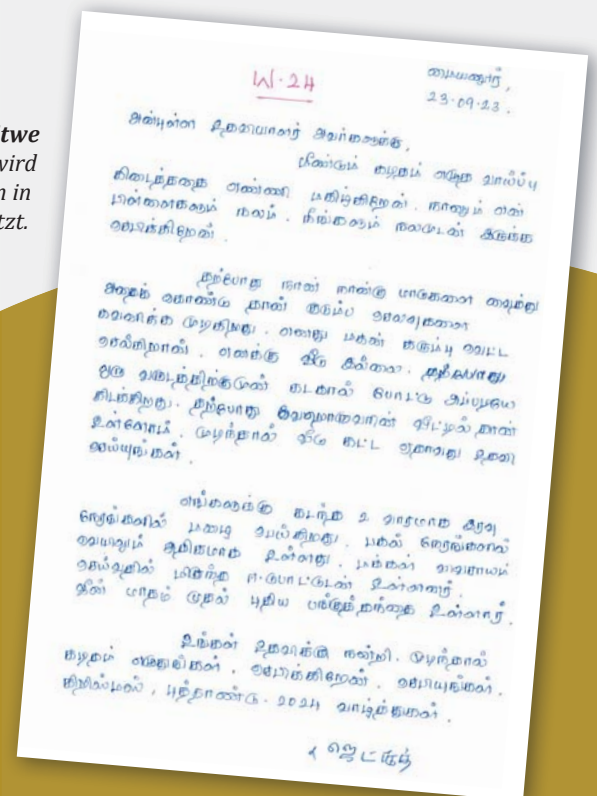 twe
wird
n in
tzt.
W-24
மையனூர்,
23.09.23.
அன்புள்ள உதவியாளர் அவர்களுக்கு,
மீண்டும் கடிதம் எழுத வாய்ப்பு
கிடைத்ததை எண்ணி மகிழ்கிறேன். நானும் என்
பிள்ளைகளும் நலம். நீங்களும் நலமுடன் இருக்க
ஜெபிக்கிறேன்.
தற்போது நான் நான்கு மாடுகளை வைத்து
அதைக் கொண்டு தான் குடும்ப செலவுகளை
கவனிக்க முடிகிறது. எனது மகன் கரும்பு வெட்ட
செல்கிறான். எனக்கு வீடு இல்லை. தற்போது
ஒரு வருடத்திற்குமுன் கடகால் போட்டு அப்படியே
கிடக்கிறது. தற்போது வீட்டில் தான்
உள்ளோம். முடிந்தால் வீடு கட்ட ஏதாவது உதவி
செய்யுங்கள்.
எங்களுக்கு கடந்த 2 வாரமாக இரவு
நேரங்களில் மழை பெய்கிறது. பகல் நேரங்களில்
வெயிலும் அதிகமாக உள்ளது. மக்கள் விவசாயம்
செய்வதில் மிகுந்த ஈடுபாட்டுடன் உள்ளனர்.
ஜீன் மாதம் முதல் புதிய பங்குத்தந்தை உள்ளார்.
உங்கள் உதவிக்கு நன்றி. முடிந்தால்
கடிதம் எழுதுங்கள். ஜெபிக்கிறேன். ஜெபியுங்கள்.
கிறிஸ்மஸ், புத்தாண்டு. 2024 வாழ்த்துகள்.